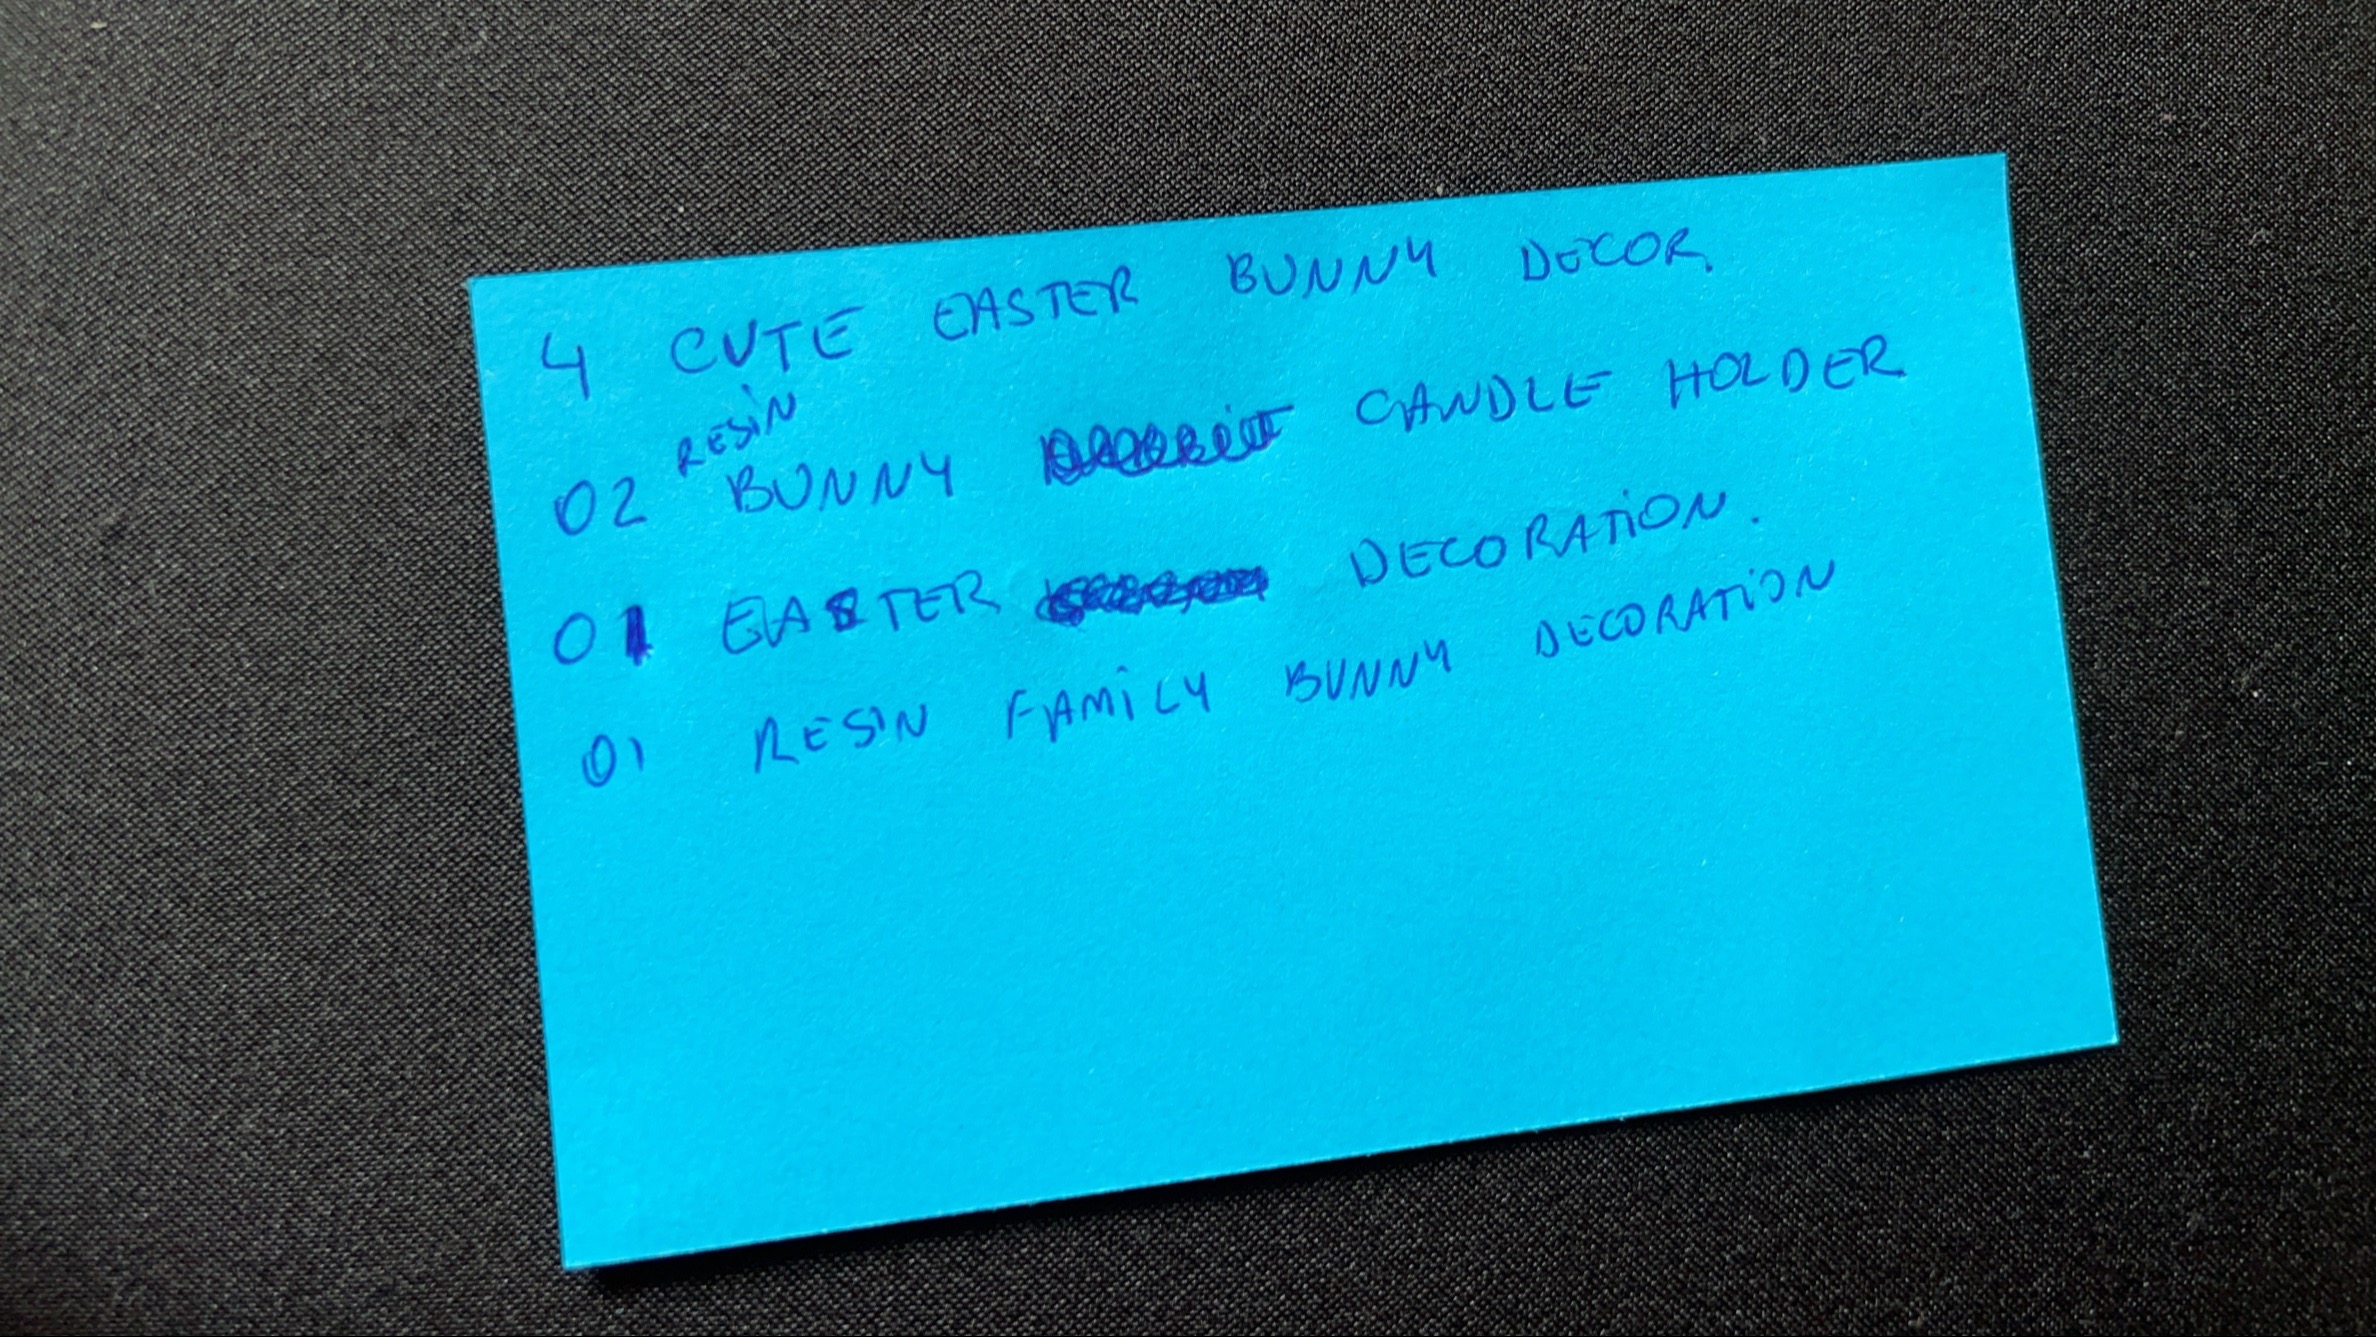 4 CUTE EASTER BUNNY DECOR.
RESIN
02 BUNNY CANDLE HOLDER
01 EASTER DECORATION.
01 RESIN FAMILY BUNNY DECORATION